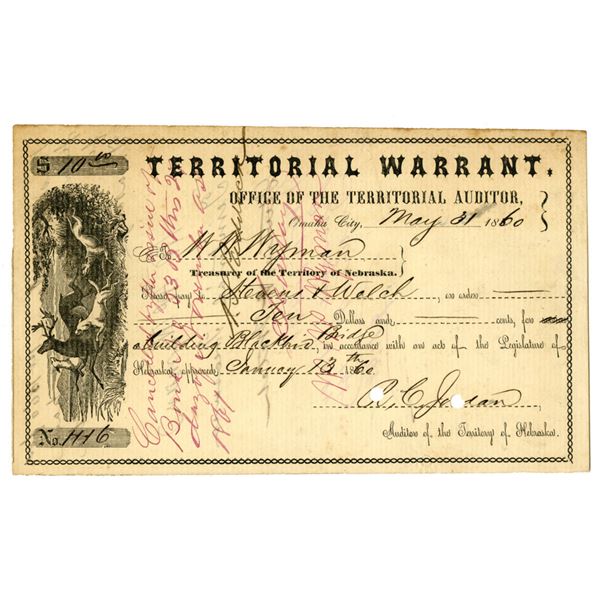 $ 10.00
TERRITORIAL WARRANT.
OFFICE OF THE TERRITORIAL AUDITOR,
Omaha City, May 31 1860
To W. W. Wyman
Treasurer of the Territory of Nebraska.
Please pay to Stevens & Welch, or order
Ten Dollars and cents, for
building Bridge in accordance with an act of the Legislature of
Nebraska, approved January 13th 1860
R. C. Jordan
Auditor of the Territory of Nebraska.
No. 1116
Cancelled by the issue of
Bond No. 23 this 2
day of
1861